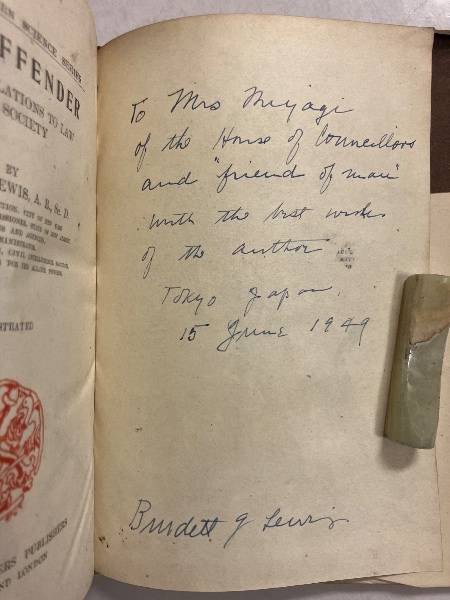 ERN SCIENCE SERIES
FFENDER
LATIONS TO LAW
SOCIETY
BY
EWIS, A. B., Sc. D.
STRATED
ERS PUBLISHERS
ND LONDON
To Mrs Miyagi
of the House of Councillors
and "friend of man"
with the best wishes
of the author
Tokyo Japan,
15 June 1949
Burdett G Lewis